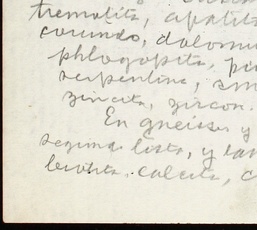 tremolita, apatita
corindo, dolomi
phlogopita, 
serpentina, 
zincita, zircon.
En gneiss y
segunda lista, y tam
biotita, calcita, c